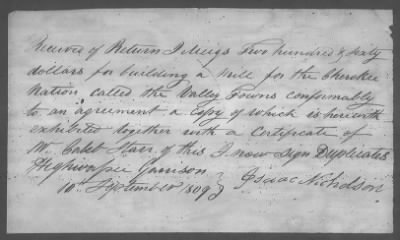 Received of Return J Meigs Two hundred & sixty
dollars for building a Mill for the Cherokee
Nation called the Valley Towns conformably
to an agreement a Copy of which is herewith
exhibited together with a Certificate of
Mr Caleb Starr of this I now Sign Duplicates
Highwassee Garrison
10th September 1809 } Isaac Nicholson